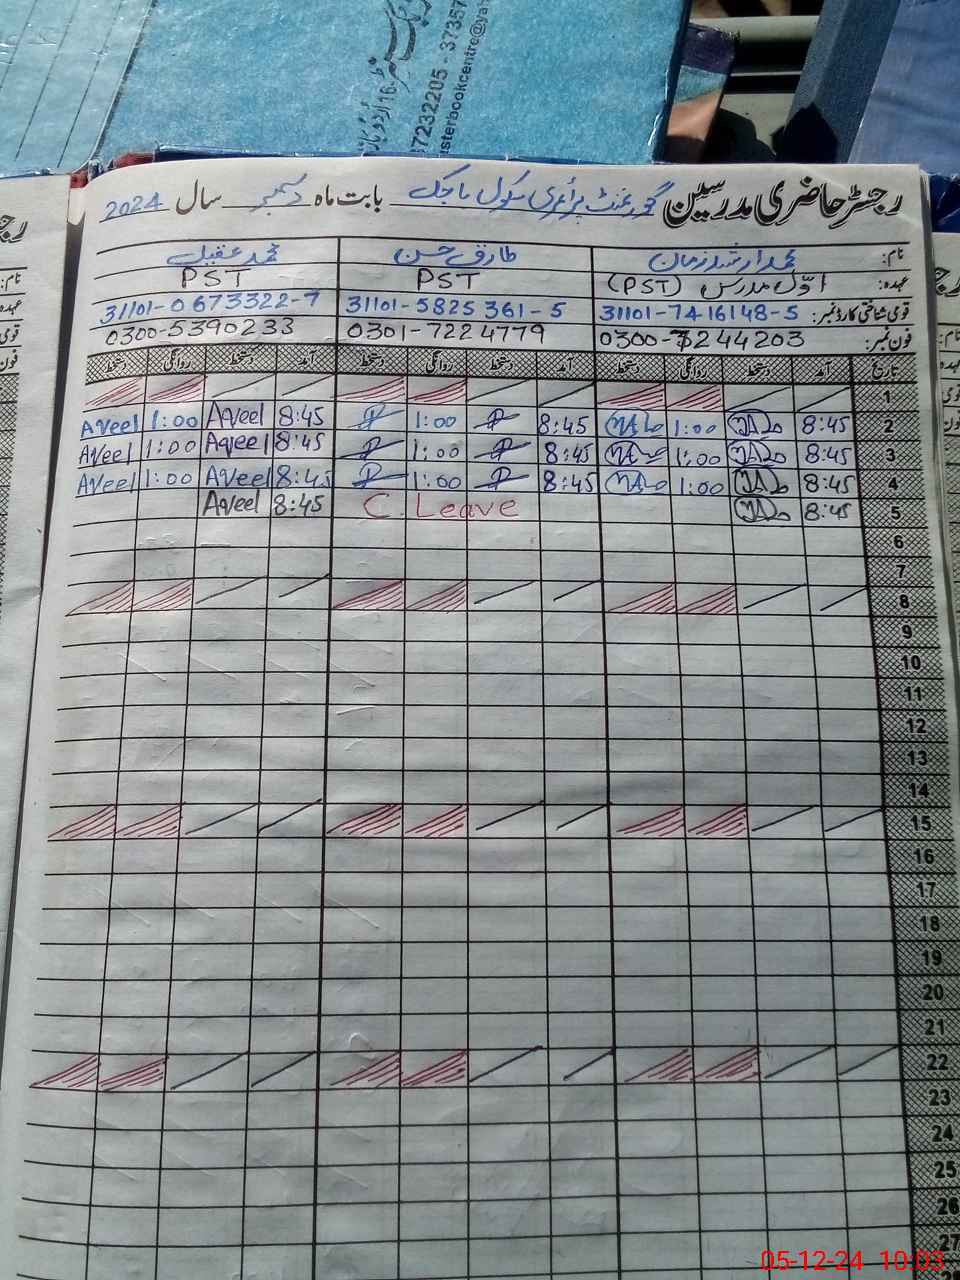 16 اردو بازار
37232205 - 3735
usterbookcentre@ya
رجسٹر حاضری مدرسین گورنمنٹ پرائمری سکول ماجک بابت ماہ دسمبر سال 2024
نام: محمد ارشد زمان طارق حسن محمد عقیل
عہدہ: اوّل مدرس (PST) PST PST
قومی شناختی کارڈ نمبر: 31101-7416148-5 31101-5825361-5 31101-0673322-7
فون نمبر: 0300-7244203 0301-7224779 0300-5390233
تاریخ آمد دستخط روانگی دستخط آمد دستخط روانگی دستخط آمد دستخط روانگی دستخط
1
2 8:45 1:00 8:45 1:00 8:45 Aqeel 1:00 Aqeel
3 8:45 1:00 8:45 1:00 8:45 Aqeel 1:00 Aqeel
4 8:45 1:00 8:45 1:00 8:45 Aqeel 1:00 Aqeel
5 8:45 C. Leave 8:45 Aqeel
6
7
8
9
10
11
12
13
14
15
16
17
18
19
20
21
22
23
24
25
26
27
05-12-24 10:03